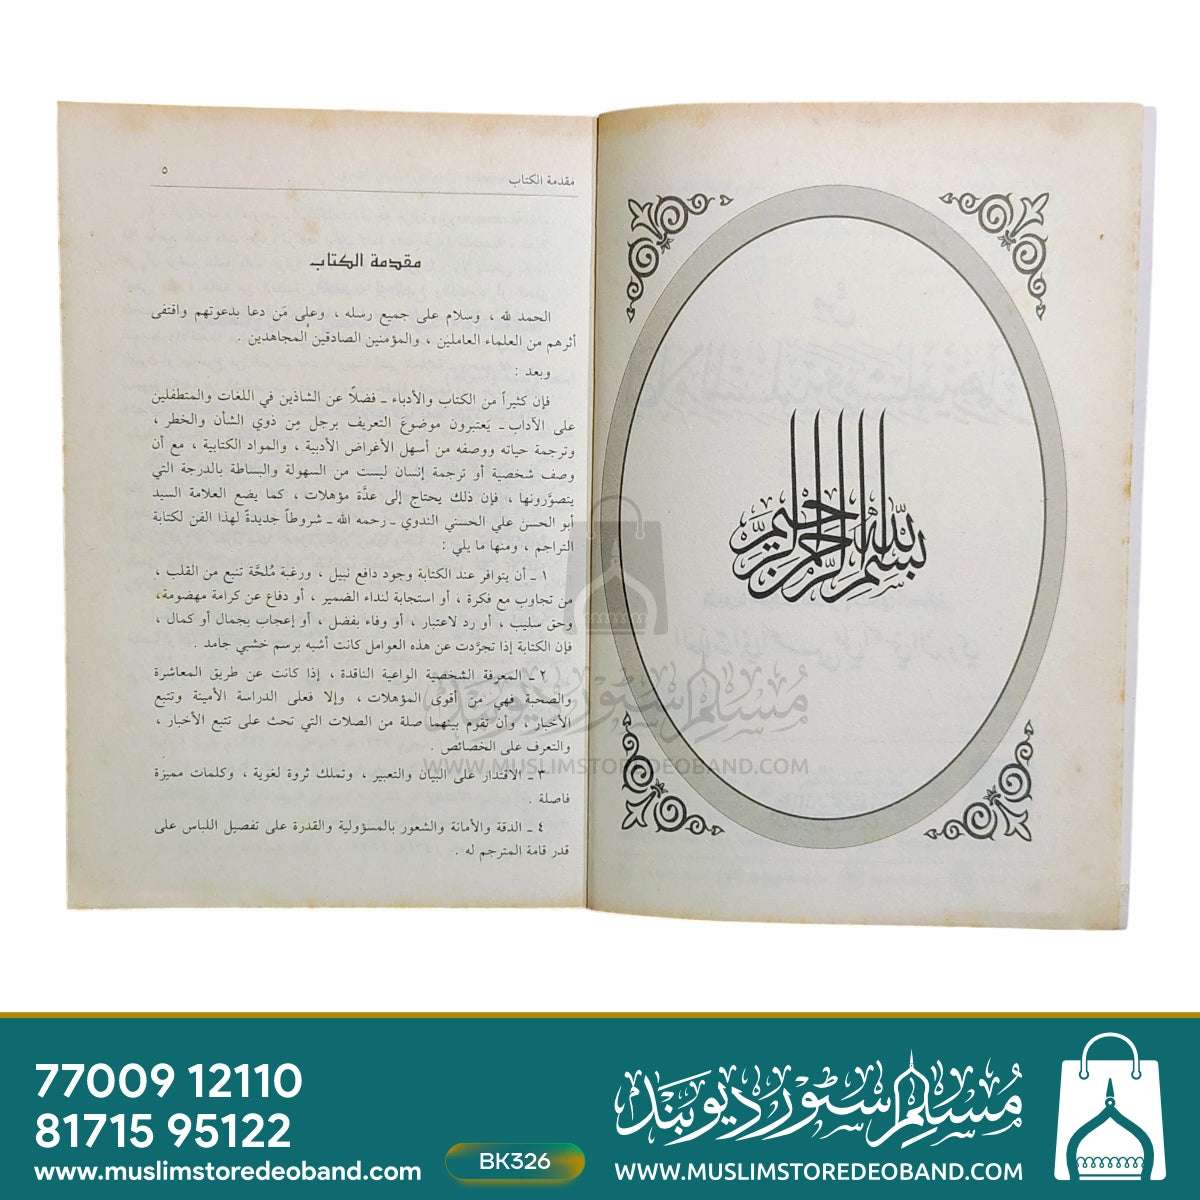 بسم الله الرحمن الرحيم
مقدمة الكتاب ٥
مقدمة الكتاب
الحمد لله ، وسلام على جميع رسله ، وعلى مَن دعا بدعوتهم واقتفى
أثرهم من العلماء العاملين ، والمؤمنين الصادقين المجاهدين .
وبعد :
فإن كثيراً من الكتاب والأدباء ـ فضلاً عن الشاذين في اللغات والمتطفلين
على الآداب ـ يَعتبرون موضوعَ التعريف برجل مِن ذوي الشأن والخطر ،
وترجمة حياته ووصفه من أسهل الأغراض الأدبية ، والمواد الكتابية ، مع أن
وصف شخصية أو ترجمة إنسان ليست من السهولة والبساطة بالدرجة التي
يتصوَّرونها ، فإن ذلك يحتاج إلى عدَّة مؤهلات ، كما يضع العلامة السيد
أبو الحسن علي الحسني الندوي ـ رحمه الله ـ شروطاً جديدةً لهذا الفن لكتابة
التراجم ، ومنها ما يلي :
١ ـ أن يتوافر عند الكتابة وجود دافع نبيل ، ورغبة مُلحَّة تنبع من القلب ،
من تجاوب مع فكرة ، أو استجابة لنداء الضمير ، أو دفاع عن كرامة مهضومة،
وحق سليب ، أو رد لاعتبار ، أو وفاء بفضل ، أو إعجاب بجمال أو كمال ،
فإن الكتابة إذا تجرَّدت عن هذه العوامل كانت أشبه برسم خشبي جامد .
٢ ـ المعرفة الشخصية الواعية الناقدة ، إذا كانت عن طريق المعاشرة
والصحبة فهي من أقوى المؤهلات ، وإلا فعلى الدراسة الأمينة وتتبع
الأخبار ، وأن تقوم بينهما صلة من الصلات التي تحث على تتبع الأخبار ،
والتعرف على الخصائص .
٣ ـ الاقتدار على البيان والتعبير ، وتملك ثروة لغوية ، وكلمات مميزة
فاصلة .
٤ ـ الدقة والأمانة والشعور بالمسؤولية والقدرة على تفصيل اللباس على
قدر قامة المترجم له .
مُسلم سٹور دیوبند
WWW.MUSLIMSTOREDEOBAND.COM
77009 12110
81715 95122
www.muslimstoredeoband.com
BK326
مُسلم سٹور دیوبند
WWW.MUSLIMSTOREDEOBAND.COM